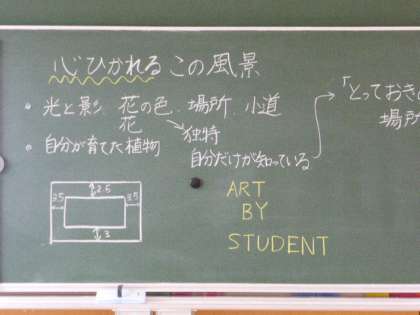 心ひかれるこの風景
・光と影、花の色、場所、小道
花
独特
「とっておきの
場所
・自分が育てた植物
自分だけが知っている
2.5
3.5
3.5
3
ART
BY
STUDENT